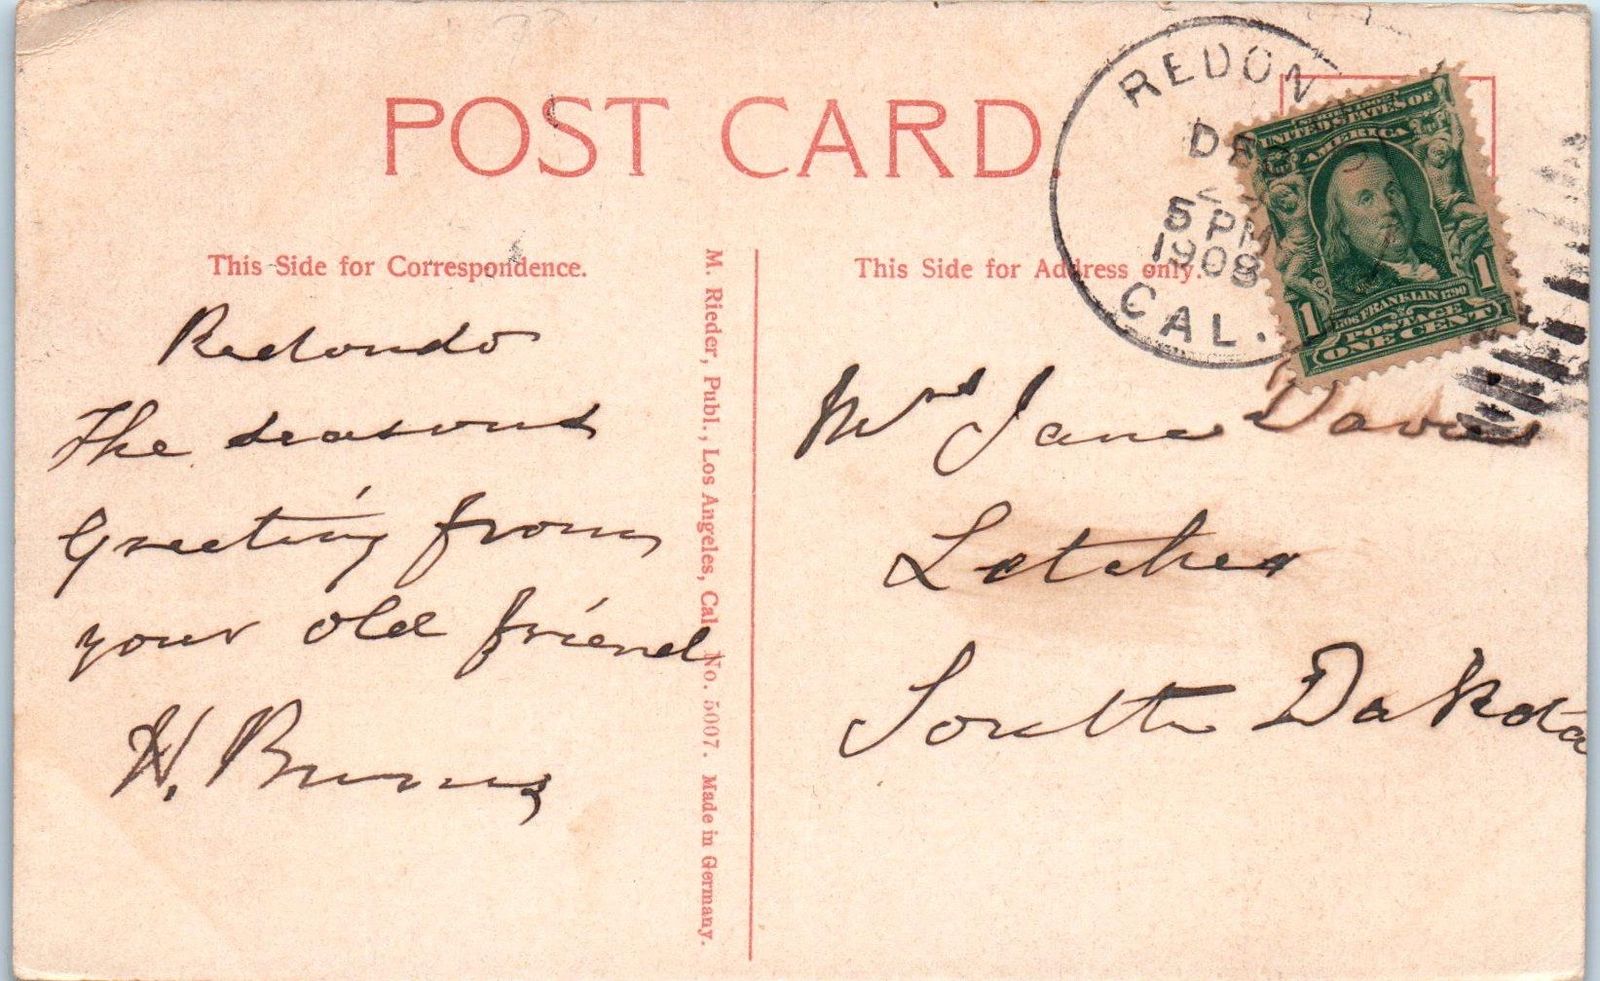 POST CARD.
This Side for Correspondence.
Redondo
The seasons
Greeting from
your old friend
H. Burns
M. Rieder, Publ., Los Angeles, Cal. No. 5007. Made in Germany.
This Side for Address only.
REDON
DEC
5 PM
1908
CAL.
SERIES 1902
UNITED STATES OF
AMERICA
1706 FRANKLIN 1790
POSTAGE
1 ONE CENT 1
Mrs Jane Davis
Letcher
South Dakota